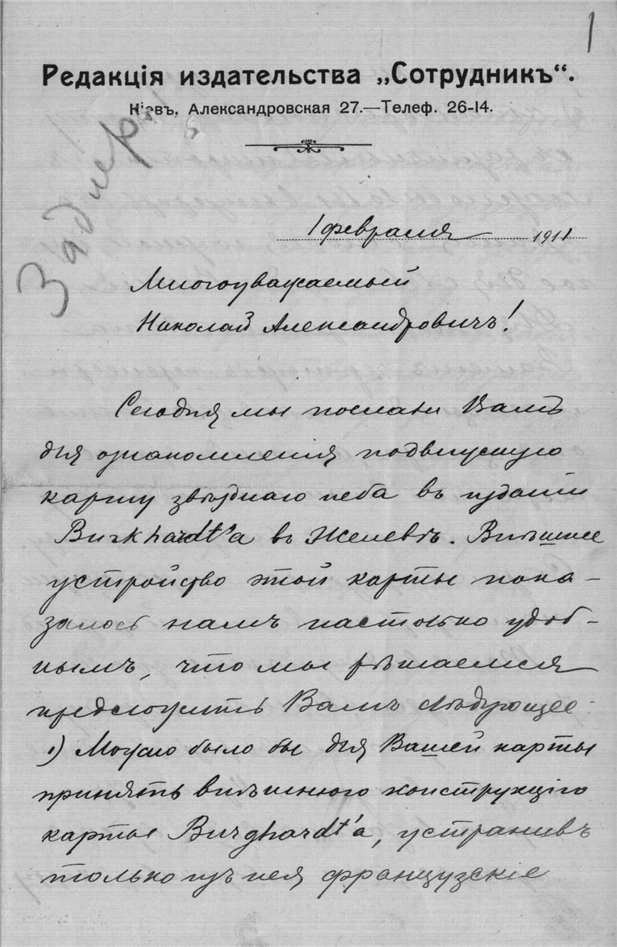 1
Редакція издательства „Сотрудникъ“.
Кіевъ, Александровская 27.—Телеф. 26-14.
1 февраля 1911
Многоуважаемый
Николай Александровичъ!
Сегодня мы послали Вамъ
для ознакомленія подвижную
карту звѣзднаго неба въ изданіи
Burkhardt'a въ Женевѣ. Внѣшнее
устройство этой карты пока-
залось намъ настолько удоб-
нымъ, что мы рѣшаемся
предложить Вамъ слѣдующее:
1) Можно было бы для Вашей карты
принять внѣшнюю конструкцію
карты Burghardt'a, устранивъ
только изъ нея французскіе